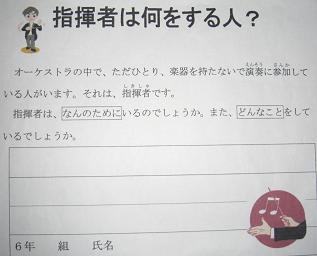 指揮者は何をする人？
オーケストラの中で、ただひとり、楽器を持たないで演奏に参加して
いる人がいます。それは、指揮者です。
指揮者は、なんのためにいるのでしょうか。また、どんなことをして
いるでしょうか。
6年 組 氏名